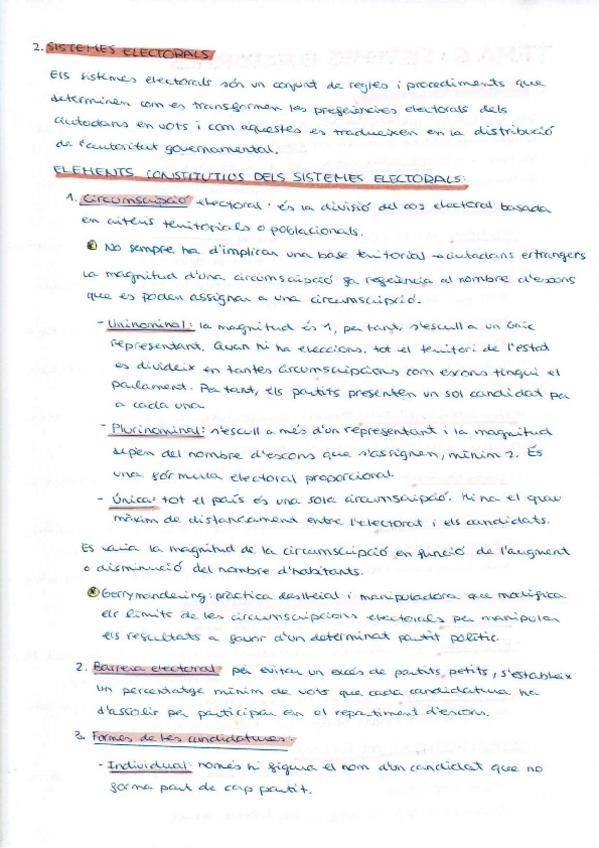 2. SISTEMES ELECTORALS
Els sistemes electorals són un conjunt de regles i procediments que
determinen com es transformen les preferències electorals dels
ciutadans en vots i com aquestes es tradueixen en la distribució
de l'autoritat governamental.
ELEMENTS CONSTITUTIUS DELS SISTEMES ELECTORALS:
1. Circumscripció electoral: és la divisió del cos electoral basada
en criteris territorials o poblacionals.
No sempre ha d'implicar una base territorial → ciutadans estrangers
La magnitud d'una circumscripció fa referència al nombre d'escons
que es poden assignar a una circumscripció.
- Uninominal: la magnitud és 1, per tant, s'escull a un únic
representant. Quan hi ha eleccions, tot el territori de l'estat
es divideix en tantes circumscripcions com escons tingui el
parlament. Per tant, els partits presenten un sol candidat per
a cada una
- Plurinominal: s'escull a més d'un representant i la magnitud
depèn del nombre d'escons que s'assignen, mínim 2. És
una fórmula electoral proporcional.
- Única: tot el país és una sola circumscripció. Hi ha el grau
màxim de distanciament entre l'electorat i els candidats.
Es varia la magnitud de la circumscripció en funció de l'augment
o disminució del nombre d'habitants.
Gerrymandering: pràctica deslleial i manipuladora que modifica
els límits de les circumscripcions electorals per manipular
els resultats a favor d'un determinat partit polític.
2. Barrera electoral per evitar un excés de partits petits, s'estableix
un percentatge mínim de vots que cada candidatura ha
d'assolir per participar en el repartiment d'escons.
3. Formes de les candidatures:
- Individual: només hi figura el nom d'un candidat que no
forma part de cap partit.